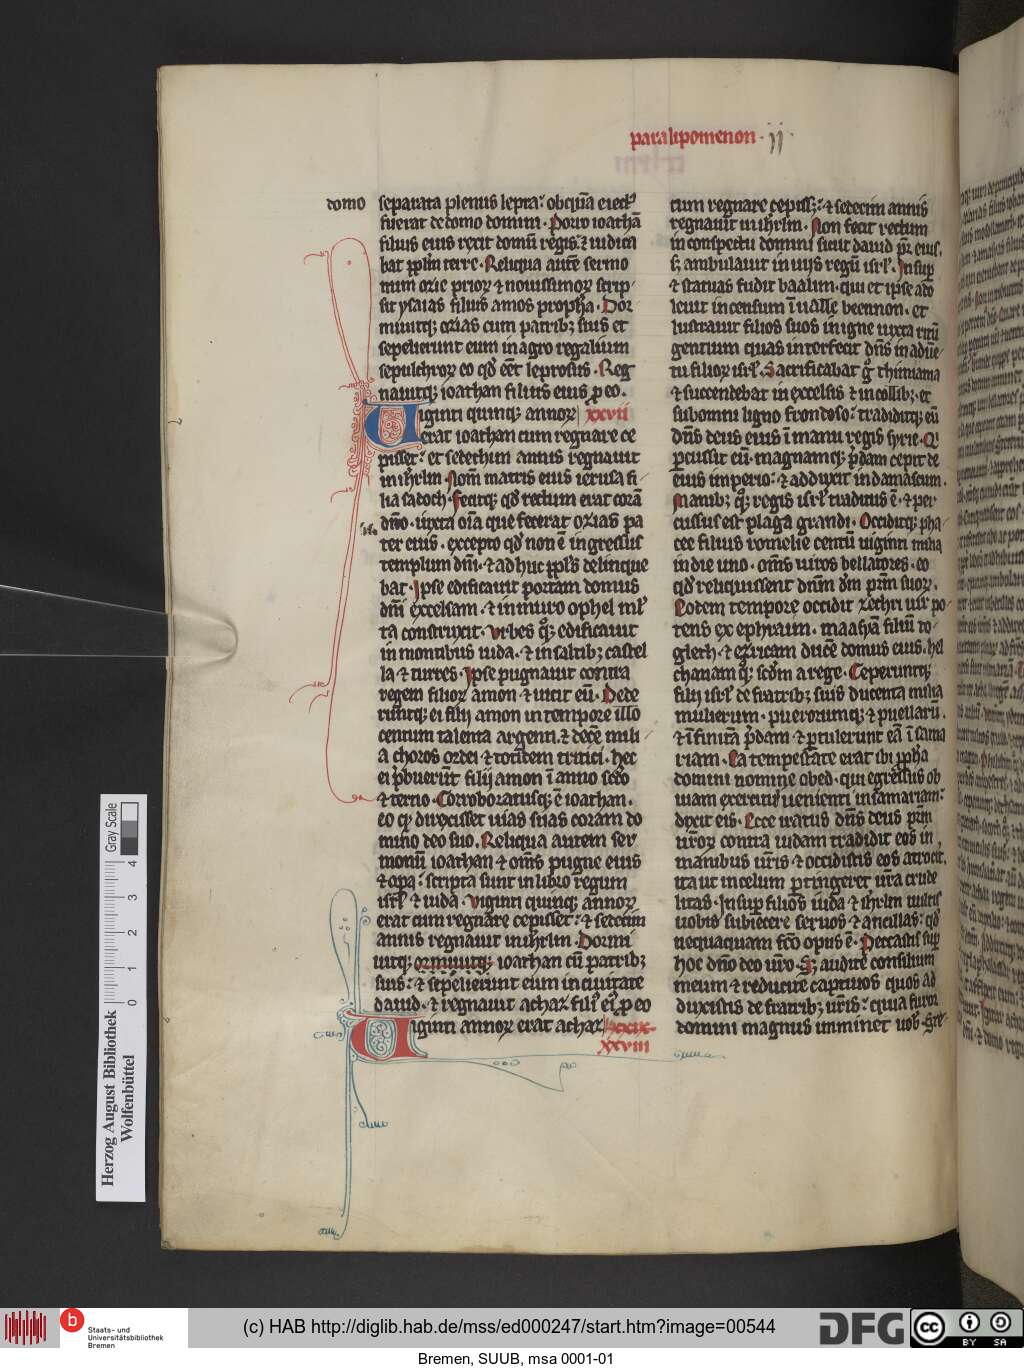 paralipomenon · II ·
domo separata plenus lepra: ob quā eiect9
fuerat de domo domini · Porro ioathā
filius eius rexit domū regis: ⁊ iudica
bat pplm terre · Reliqua autē sermo
num ozie prioꝝ ⁊ nouissimoꝝ scrip-
sit ysaias filius amos propha · Dor
miuitqꝫ ozias cum patribꝫ suis et
sepelierunt eum in agro regalium
sepulchroꝝ eo qd̓ eēt leprosus · Reg
nauitqꝫ ioathan filius eius p eo ·
Uiginti quinqꝫ annoꝝ xxvii
erat ioathan cum regnare ce
pisset: et sedechim annis regnauit
in ihrlm · Nom̄ matris eius ierusa fi-
lia sadoch · Fecitqꝫ qd̓ rectum erat corā
dn̄o · iuxta oīa que fecerat ozias pa
ter eius · excepto qd̓ non ē ingressus
templum dn̄i · ⁊ adhuc ppl's delinque
bat · Ipse edificauit portam domus
dn̄i excelsam · ⁊ in muro ophel ml'
ta construxit · Vrbes qꝫ edificauit
in montibus iuda · ⁊ in saltibꝫ castel
la ⁊ turres · Ipse pugnauit contra
regem filioꝝ amon ⁊ uicit eū · Dede
runtqꝫ ei filij amon in tempore illo
centum talenta argenti · ⁊ decē mili
a choros ordei ⁊ totidem tritici · hec
ei p̄buerūt filij amon ī anno scd̓o
⁊ terno · Corroboratusqꝫ ē ioathan ·
eo qꝫ direxisset uias suas coram do
mino deo suo · Reliqua autem ser
monū ioathan ⁊ om̄s pugne eius
⁊ opa: scripta sunt in libro regum
isrl' ⁊ iuda · Viginti quinqꝫ annoꝝ
erat cum regnare cepisset: ⁊ sedecim
annis regnauit in ihrlm · Dormi
uitqꝫ ormiuitqꝫ ioathan cū patribꝫ
suis: ⁊ sepelierunt eum in ciuitate
dauid · ⁊ regnauit achaz fili9 ei9 p eo
Uiginti annoꝝ erat achaz xxix ·
xxviii
cum regnare cepissꝫ: ⁊ sedecim annis
regnauit in ihrlm · Non fecit rectum
in conspectu domini sicut dauid pr̄ eius ·
sꝫ ambulauit in uijs regū isrl' · Insup
⁊ statuas fudit baalim · qui et ipse ado
leuit incensum ī ualle beennon · et
lustrauit filios suos in igne iuxta ritū
gentium quas interfecit dn̄s in aduē-
tu filioꝝ isrl' · Sacrificabat qꝫ thimiama
⁊ succendebat in excelsis ⁊ in collibꝫ · et
sub omni ligno frondoso: tradiditqꝫ eū
dn̄s deus eius ī manu regis syrie · Qi
pcussit eū · magnamqꝫ p̄dam cepit de
eius imperio: ⁊ adduxit in damascum ·
Manibꝫ qꝫ regis isrl' traditus ē · ⁊ per
cussus est plaga grandi · Occiditqꝫ pha-
cee filius romelie centū uiginti milia
in die uno · om̄s uiros bellatores · eo
qd̓ reliquissent dn̄m dm̄ prm̄ suoꝝ ·
Eodem tempore occidit zechri uir po-
tens ex ephraim · maasyā filiū ro-
gleth · ⁊ ezricam ducē domus eius · hel
chanam qꝫ scd̓m a rege · Ceperuntqꝫ
filij isrl' de fratribꝫ suis ducenta milia
mulierum · puerorumqꝫ ⁊ puellarū ·
⁊ īfinitā p̄dam ⁊ ptulerunt eā ī sama
riam · Ea tempestate erat ibi ppha
domini nomine obed · qui egressus ob
uiam exercitui uenienti in samariam:
dixit eis · Ecce iratus dn̄s deus prm̄
ur̄oꝝ contra iudam tradidit eos in
manibus ur̄is ⁊ occidistis eos atrocit̓ ·
ita ut in celum ptingeret ur̄a crude
litas · Insup filios iuda ⁊ ihrlm uultis
uobis subicere seruos ⁊ ancillas: qd̓
nequaquam fc̄o opus ē · Peccastis sup
hoc dn̄o deo ur̄o · Sꝫ audite consilium
meum ⁊ reducite captiuos quos ad
duxistis de fratribꝫ ur̄is: quia furor
domini magnus imminet uob' · Ste-
Gray Scale
0 1 2 3 4
Herzog August Bibliothek
Wolfenbüttel
b Staats- und
Universitätsbibliothek
Bremen
(c) HAB http://diglib.hab.de/mss/ed000247/start.htm?image=00544
DFG
cc BY SA
Bremen, SUUB, msa 0001-01